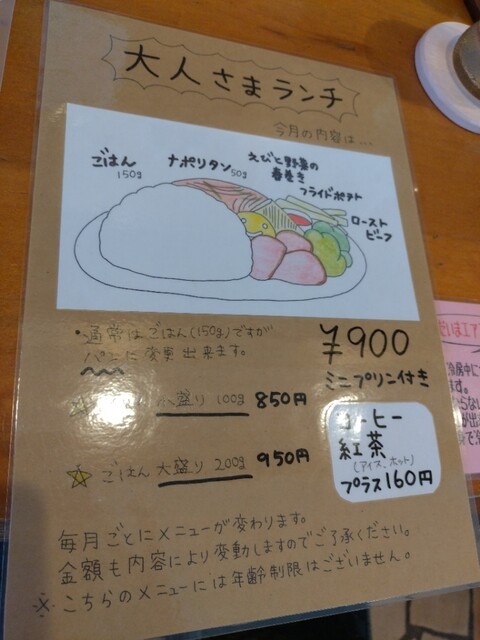 大人さまランチ
今月の内容は…
ごはん
150g
ナポリタン50g
えびと野菜の
春巻き
フライドポテト
ロースト
ビーフ
・通常はごはん(150g)ですが
パンに変更出来ます。
¥900
ミニプリン付き
盛り 100g 850円
☆ごはん 大盛り 200g 950円
コーヒー
紅茶
(アイス、ホット)
プラス160円
毎月ごとにメニューが変わります。
金額も内容により変動しますのでご了承ください。
※こちらのメニューには年齢制限はございません。